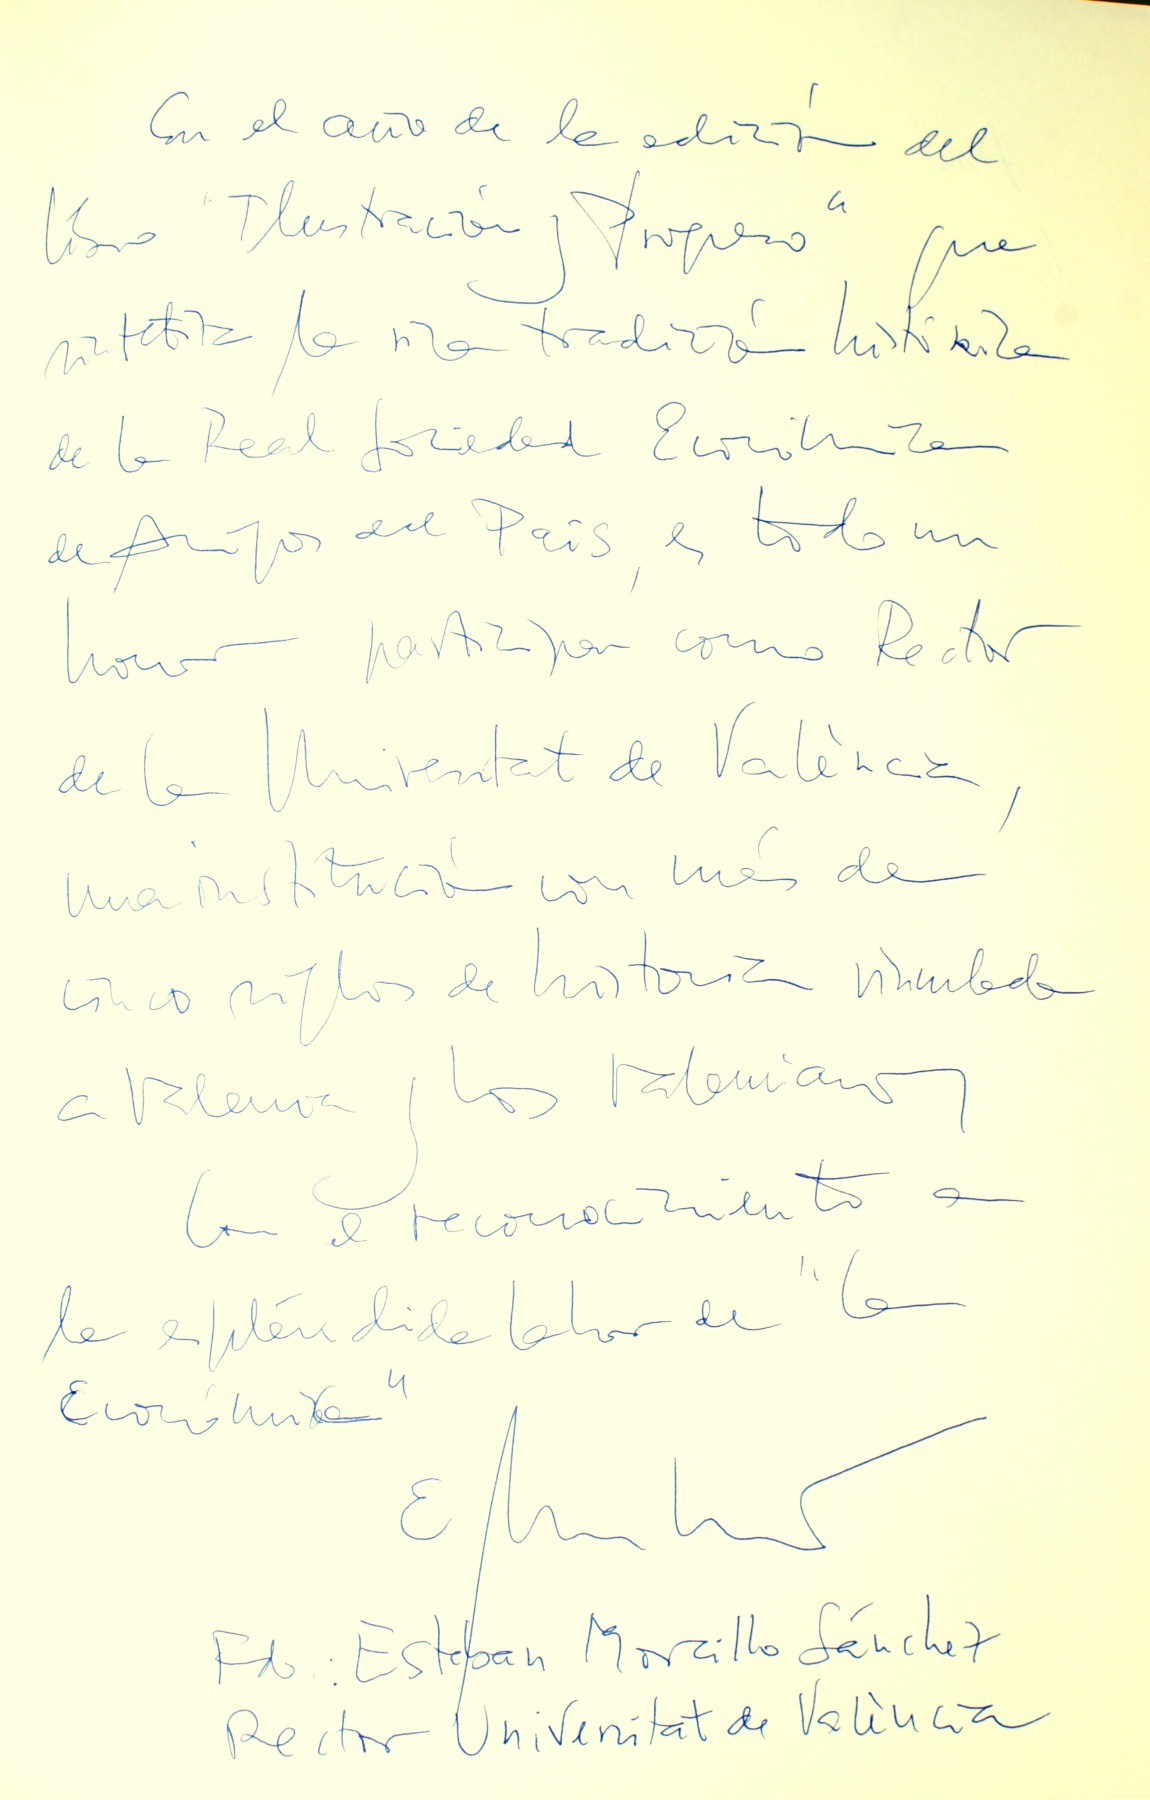 En el año de la edición del
libro "Ilustración y Progreso" que
sintetiza la rica tradición histórica
de la Real Sociedad Económica
de Amigos del País, es todo un
honor participar como Rector
de la Universitat de València,
una institución con más de
cinco siglos de historia vinculada
a Valencia y los valencianos
Con el reconocimiento a
la espléndida labor de "la
Económica"
Fdo.: Esteban Morcillo Sánchez
Rector Universitat de València